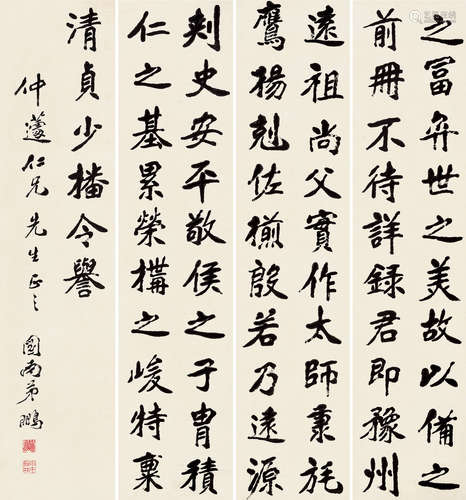 之冨弈世之美故以備之
前冊不待詳録君即豫州
遠祖尚父實作太師秉旄
鷹揚剋佐揃殷若乃遠源
刺史安平敬侯之子冑積
仁之基累榮構之峻特稟
清貞少播令譽
仲蘧仁兄先生正之
圖南弟鵬